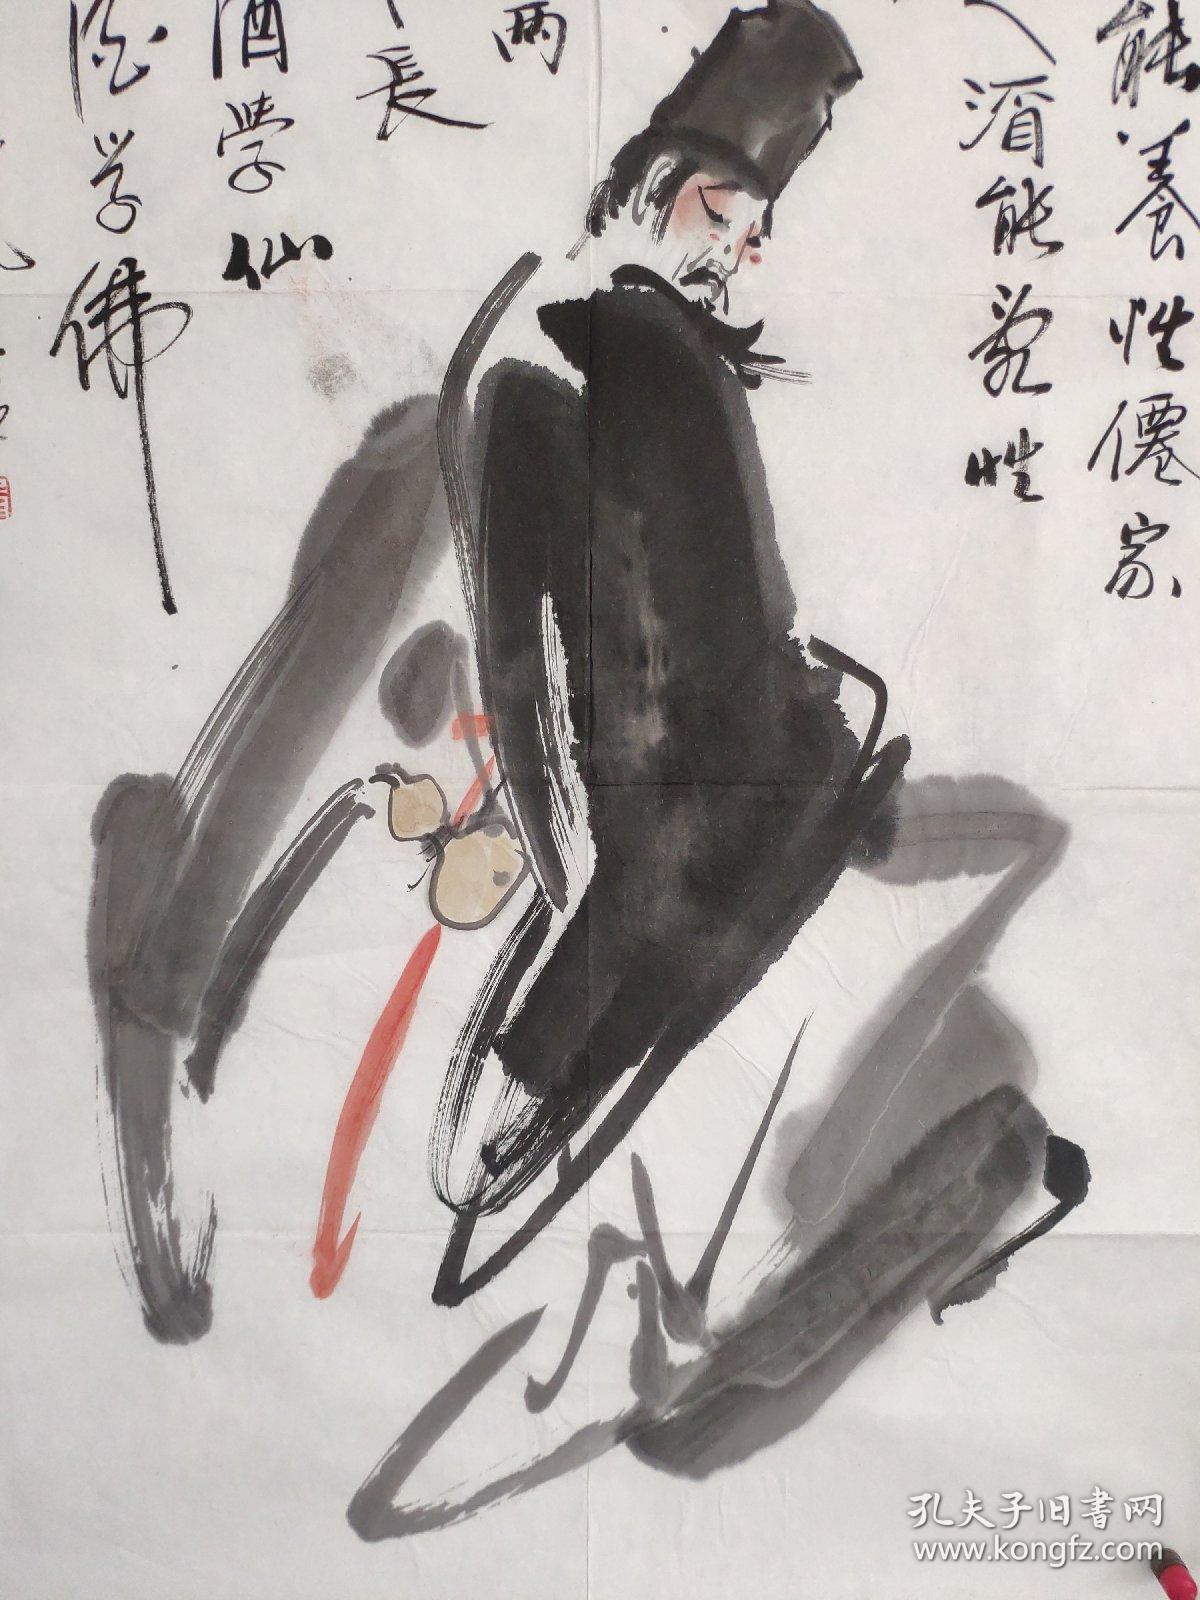 能養性僊家
酒能亂性
兩
長
酒學仙
酒学佛
孔夫子旧书网
www.kongfz.com